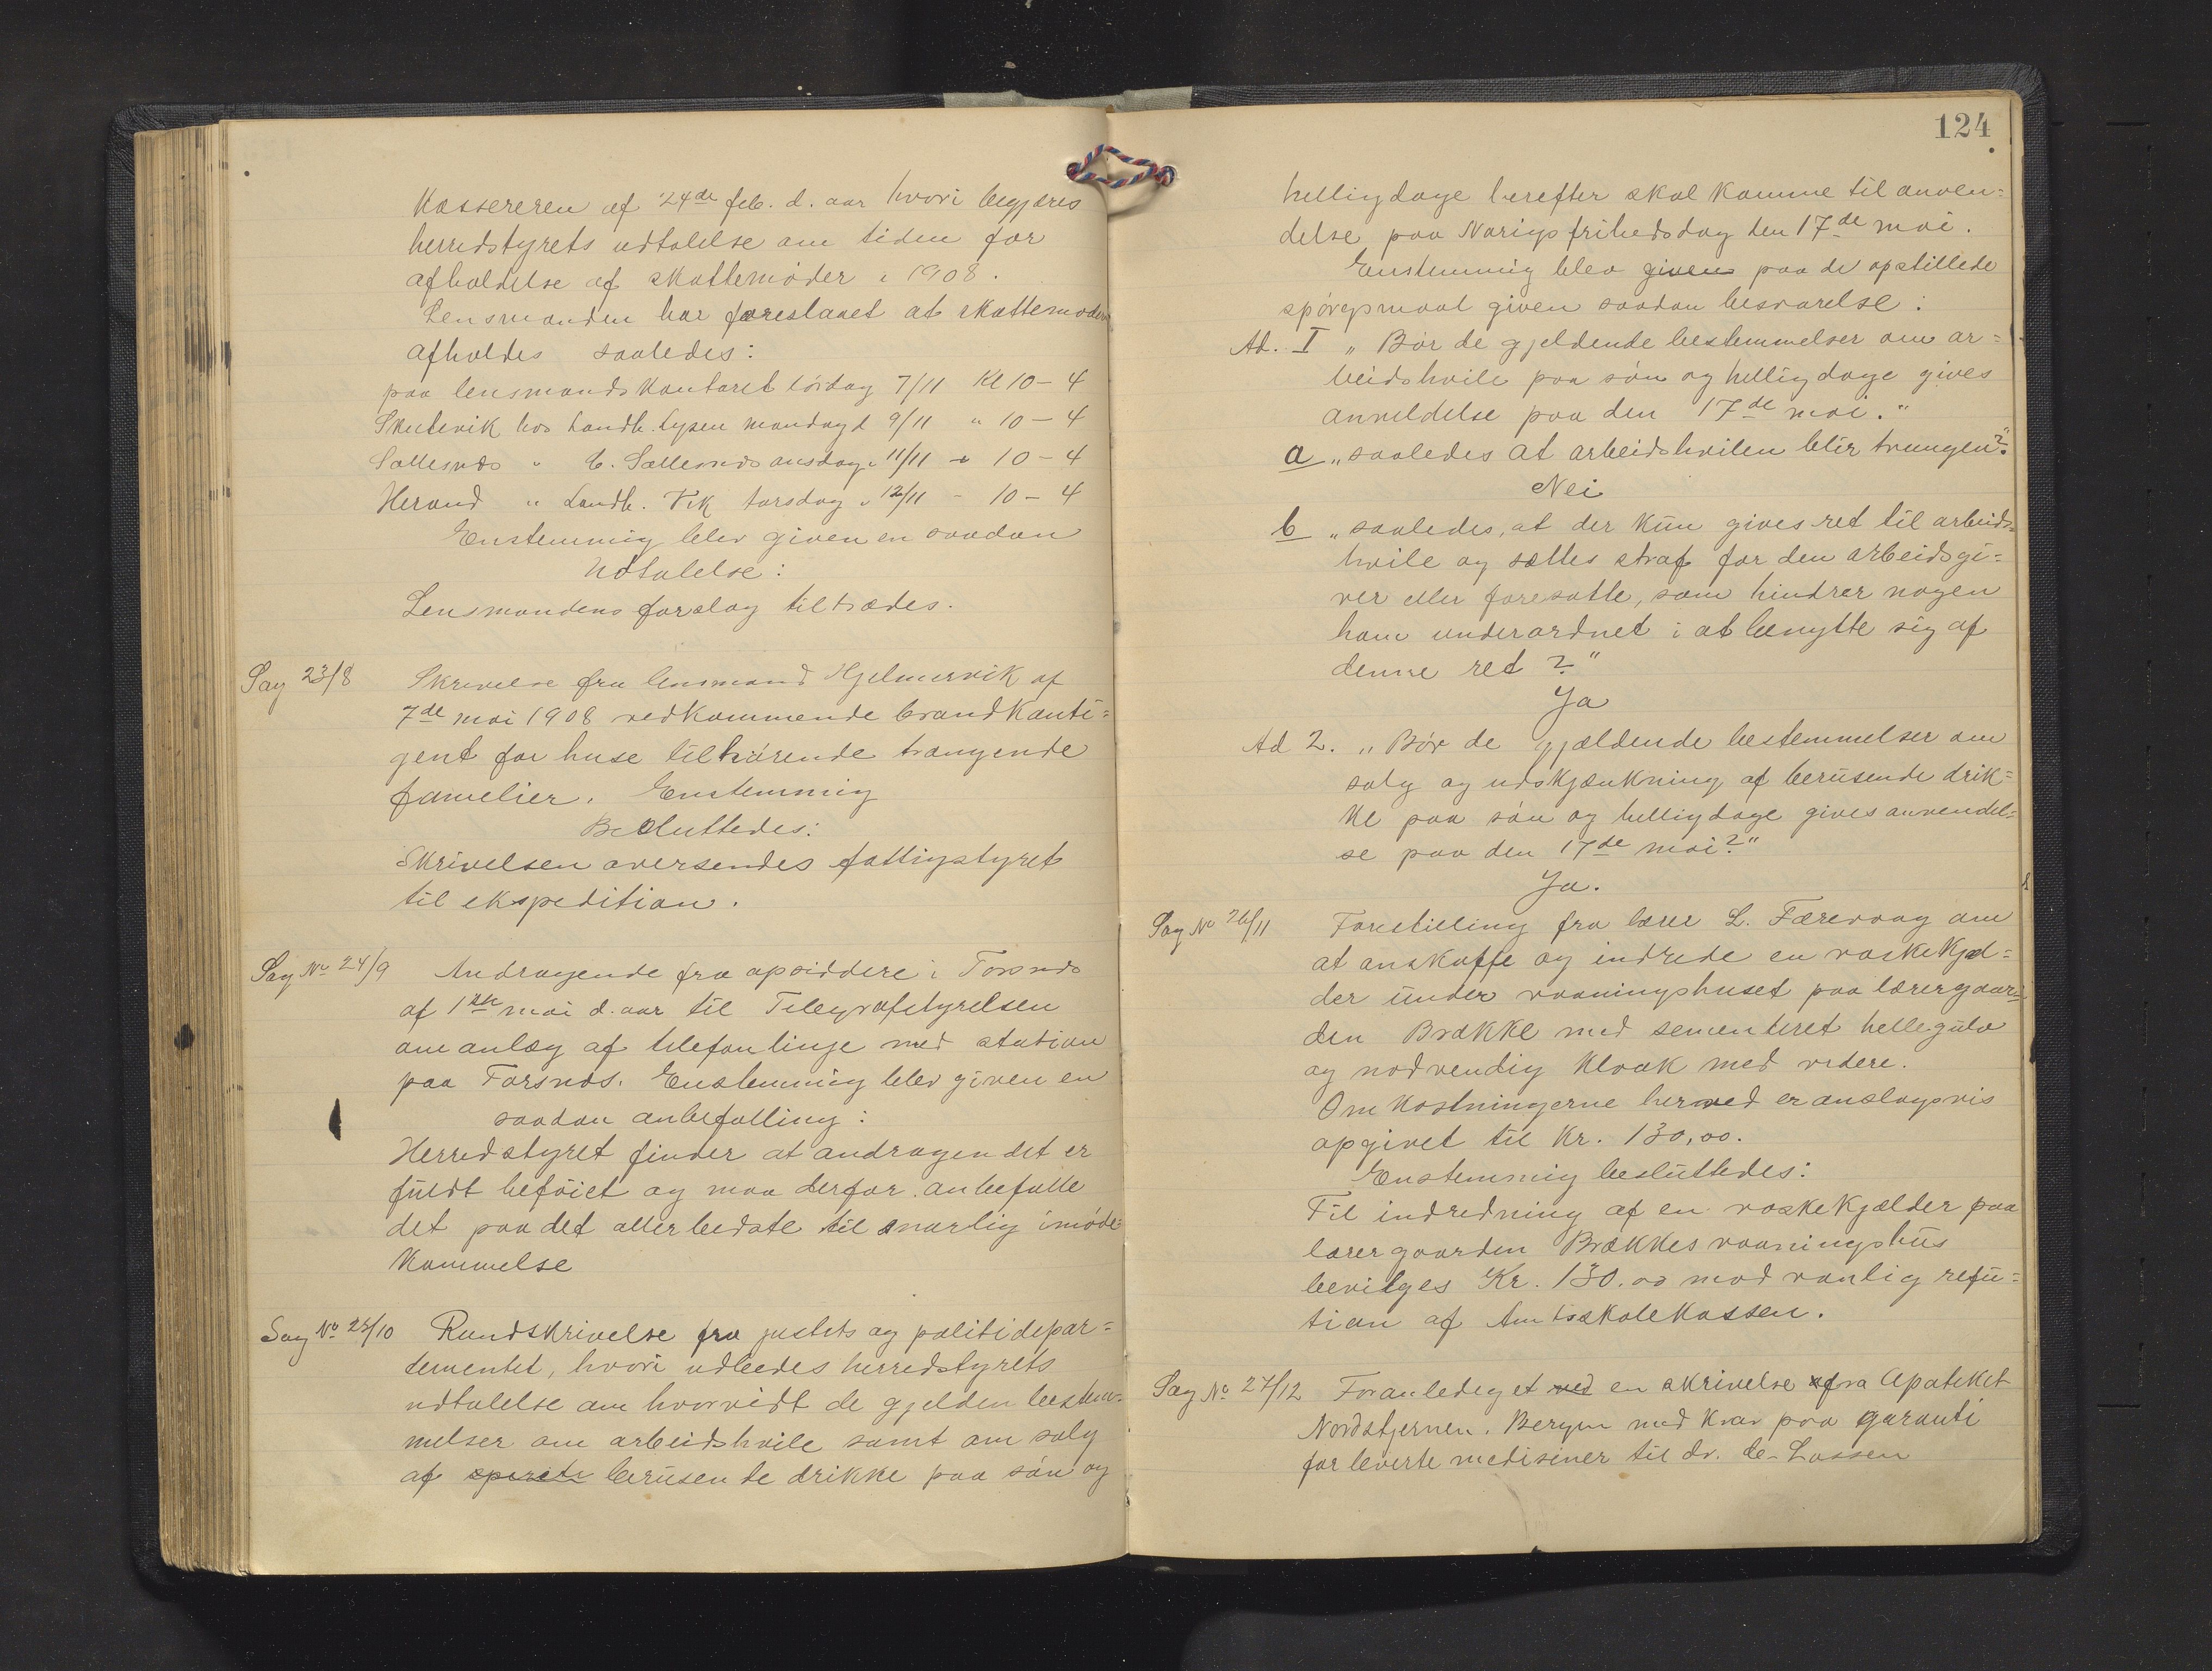 Kassereren af 24de feb. d. aar hvori begjæres
herredstyrets udtalelse om tiden for
afholdelse af skattemøder i 1908.
Lensmanden har foreslaaet at skattemøder
afholdes saaledes:
paa lensmandskontoret lørdag 7/11 Kl 10 - 4
Skutevik hos Landh. Lysen mandag d 9/11 " 10 - 4
Sallesnds " E. Sallesnds onsdag " 11/11 - 10 - 4
Herand " Landh. Vik torsdag " 12/11 - 10 - 4
Enstemmig blev given en saadan
Udtalelse:
Lensmandens forslag tiltrædes.
Sag 23/8 Skrivelse fra lensmand Hjelmervik af
7de mai 1908 vedkommende brandkonti=
gent for huse tilhørende trængende
famelier. Enstemmig
Besluttedes:
Skrivelsen oversendes fattigstyret
til ekspedition.
Sag No 24/9 Andragende fra opsiddere i Torsnds
af 1ste mai d. aar til Telegrafstyrelsen
om anlæg af telefonlinje med station
paa Torsnds. Enstemmig blev given en
saadan anbefalling:
Herredstyret finder at andragendet er
fuldt beføiet og maa derfor anbefalle
det paa det allerbedste til snarlig imøde
kommelse
Sag No 25/10 Rundskrivelse fra justits og politidepar=
tementet, hvori udbedes herredstyrets
udtalelse om hvorvidt de gjelden bestem=
melser om arbeidshvile samt om salg
af spirete berusende drikke paa søn og
124
helligdage herefter skal komme til anven=
delse paa Norigs frihedsdag den 17de mai.
Enstemmig blev given paa de opstillede
spørgsmaal given saadan besvarelse:
Ad. I " Bør de gjeldende bestemmelser om ar=
beidshvile paa søn og helligdage gives
anveldelse paa den 17de mai."
a " saaledes at arbeidshvilen blir tvungen?"
Nei
b " saaledes, at der kun gives ret til arbeids=
hvile og sættes straf for den arbeidsgi=
ver eller foresatte, som hindrer nogen
ham underordnet i at benytte sig af
denne ret?"
Ja
Ad 2. " Bør de gjældende bestemmelser om
salg og udskjænkning af berusende drik=
ke paa søn og helligdage gives anvendel=
se paa den 17de mai?"
Ja.
Sag No 26/11 Forestilling fra lærer L. Færevaag om
at anskaffe og indrede en vaskekjel=
der under vaaningshuset paa lærergaar=
den Brække med sementeret hellegulv
og nødvendig kloak med videre.
Omkostningerne herved er anslagsvis
opgivet til Kr. 130,00.
Enstemmig besluttedes:
Til indredning af en vaskekjælder paa
lærergaarden Brækkes vaaningshus
bevilges Kr. 130.00 mod vanlig refu=
tion af Amtsskolekassen.
Sag No 27/12 Foranlediget ved en skrivelse fra Apoteket
Nordstjernen. Bergen med krav paa garanti
for leverte medisiner til dr. de-Lassen